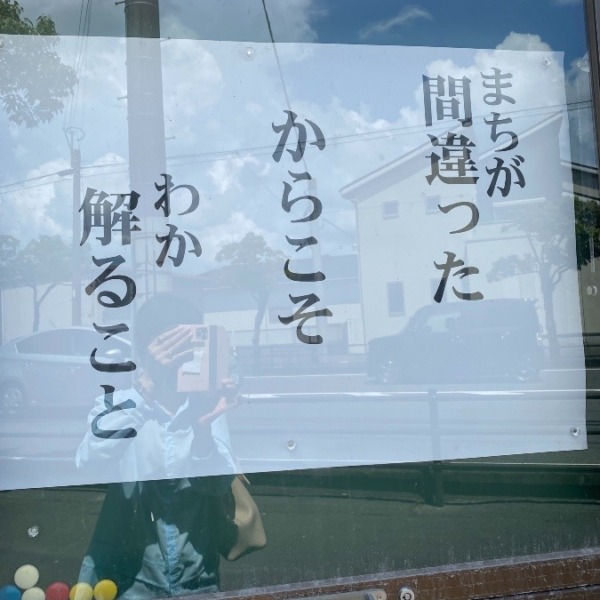 まちが
間違った
からこそ
わか
解ること